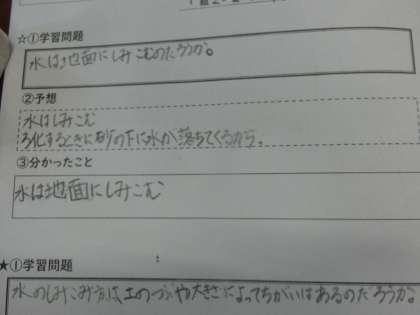 ☆①学習問題
水は地面にしみこむのだろうか。
②予想
水はしみこむ
ろ化するときに砂の下に水が落ちてくるから。
③分かったこと
水は地面にしみこむ
★①学習問題
水のしみこみ方は、土のつぶや大きさによってちがいはあるのだろうか。